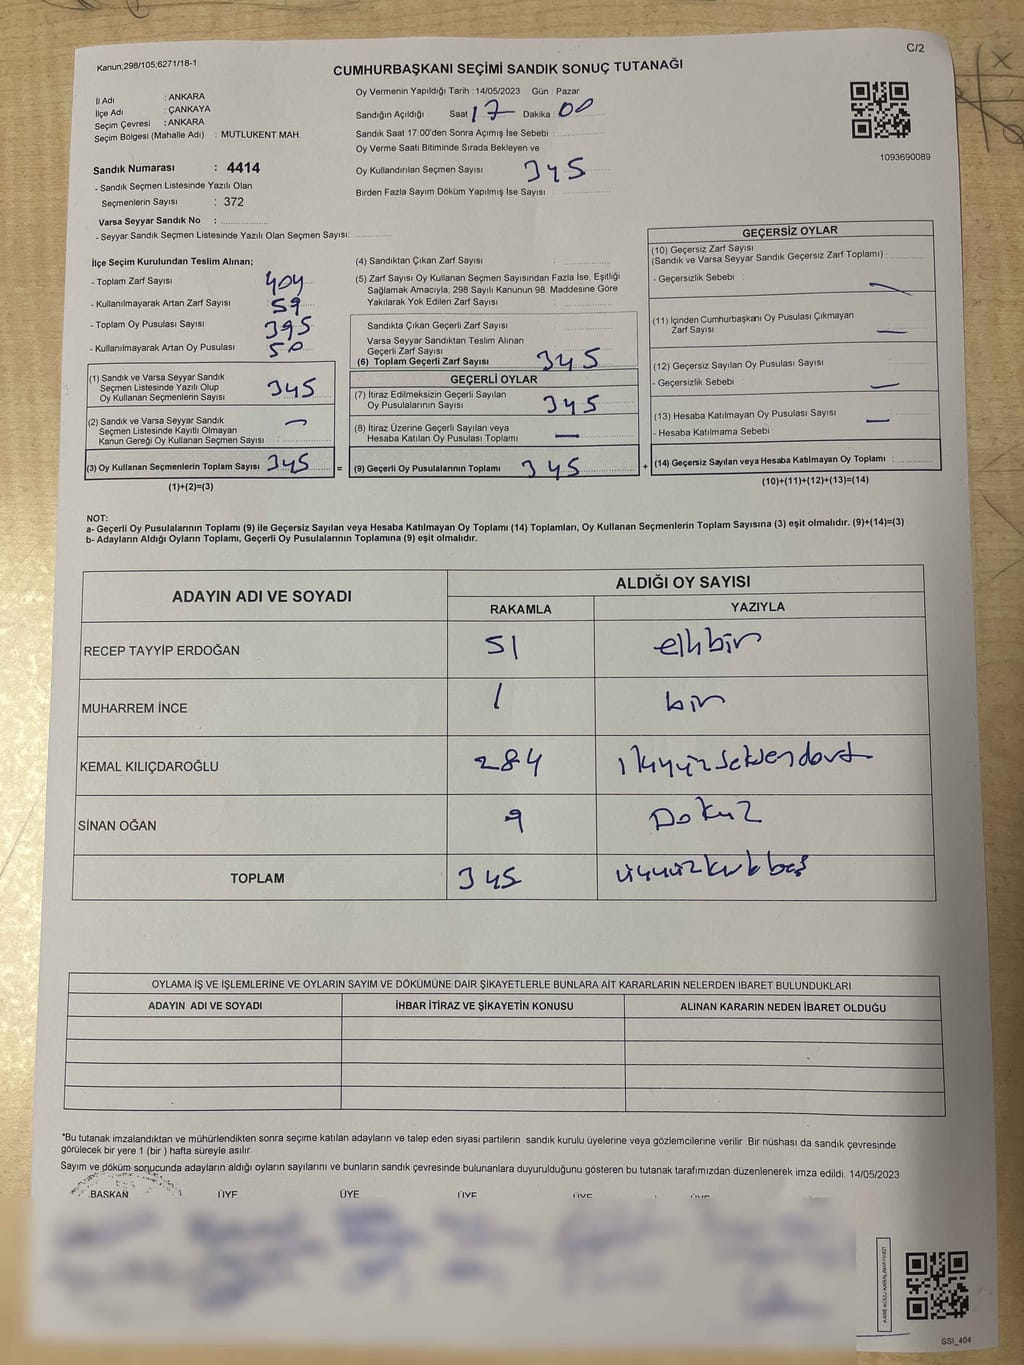 Kanun;298/105,6271/18-1
C/2
CUMHURBAŞKANI SEÇİMİ SANDIK SONUÇ TUTANAĞI
İl Adı : ANKARA
İlçe Adı : ÇANKAYA
Seçim Çevresi : ANKARA
Seçim Bölgesi (Mahalle Adı) : MUTLUKENT MAH.
Oy Vermenin Yapıldığı Tarih : 14/05/2023 Gün : Pazar
Sandığın Açıldığı Saat 17 Dakika : 00
Sandık Saat 17:00'den Sonra Açımış İse Sebebi :
Oy Verme Saati Bitiminde Sırada Bekleyen ve
Oy Kullandırılan Seçmen Sayısı 345
Birden Fazla Sayım Döküm Yapılmış İse Sayısı
1093690089
Sandık Numarası : 4414
- Sandık Seçmen Listesinde Yazılı Olan
Seçmenlerin Sayısı : 372
Varsa Seyyar Sandık No :
- Seyyar Sandık Seçmen Listesinde Yazılı Olan Seçmen Sayısı:
İlçe Seçim Kurulundan Teslim Alınan;
- Toplam Zarf Sayısı 404
- Kullanılmayarak Artan Zarf Sayısı 59
- Toplam Oy Pusulası Sayısı 395
- Kullanılmayarak Artan Oy Pusulası 50
(1) Sandık ve Varsa Seyyar Sandık
Seçmen Listesinde Yazılı Olup
Oy Kullanan Seçmenlerin Sayısı 345
(2) Sandık ve Varsa Seyyar Sandık
Seçmen Listesinde Kayıtlı Olmayan
Kanun Gereği Oy Kullanan Seçmen Sayısı : —
(3) Oy Kullanan Seçmenlerin Toplam Sayısı 345 =
(1)+(2)=(3)
(4) Sandıktan Çıkan Zarf Sayısı :
(5) Zarf Sayısı Oy Kullanan Seçmen Sayısından Fazla İse, Eşitliği
Sağlamak Amacıyla, 298 Sayılı Kanunun 98. Maddesine Göre
Yakılarak Yok Edilen Zarf Sayısı :
Sandıkta Çıkan Geçerli Zarf Sayısı
Varsa Seyyar Sandıktan Teslim Alınan
Geçerli Zarf Sayısı
(6) Toplam Geçerli Zarf Sayısı 345
GEÇERLİ OYLAR
(7) İtiraz Edilmeksizin Geçerli Sayılan
Oy Pusulalarının Sayısı 345
(8) İtiraz Üzerine Geçerli Sayılan veya
Hesaba Katılan Oy Pusulası Toplamı —
(9) Geçerli Oy Pusulalarının Toplamı 345 +
GEÇERSİZ OYLAR
(10) Geçersiz Zarf Sayısı
(Sandık ve Varsa Seyyar Sandık Geçersiz Zarf Toplamı) :
- Geçersizlik Sebebi : —
(11) İçinden Cumhurbaşkanı Oy Pusulası Çıkmayan
Zarf Sayısı : —
(12) Geçersiz Sayılan Oy Pusulası Sayısı :
- Geçersizlik Sebebi : —
(13) Hesaba Katılmayan Oy Pusulası Sayısı : —
- Hesaba Katılmama Sebebi
(14) Geçersiz Sayılan veya Hesaba Katılmayan Oy Toplamı :
(10)+(11)+(12)+(13)=(14)
NOT:
a- Geçerli Oy Pusulalarının Toplamı (9) ile Geçersiz Sayılan veya Hesaba Katılmayan Oy Toplamı (14) Toplamları, Oy Kullanan Seçmenlerin Toplam Sayısına (3) eşit olmalıdır. (9)+(14)=(3)
b- Adayların Aldığı Oyların Toplamı, Geçerli Oy Pusulalarının Toplamına (9) eşit olmalıdır.
ADAYIN ADI VE SOYADI
ALDIĞI OY SAYISI
RAKAMLA YAZIYLA
RECEP TAYYİP ERDOĞAN 51 ellibir
MUHARREM İNCE 1 bir
KEMAL KILIÇDAROĞLU 284 ikiyüzseksendört
SİNAN OĞAN 9 Dokuz
TOPLAM 345 üçyüzkırkbeş
OYLAMA İŞ VE İŞLEMLERİNE VE OYLARIN SAYIM VE DÖKÜMÜNE DAİR ŞİKAYETLERLE BUNLARA AİT KARARLARIN NELERDEN İBARET BULUNDUKLARI
ADAYIN ADI VE SOYADI İHBAR İTİRAZ VE ŞİKAYETİN KONUSU ALINAN KARARIN NEDEN İBARET OLDUĞU
*Bu tutanak imzalandıktan ve mühürlendikten sonra seçime katılan adayların ve talep eden siyasi partilerin sandık kurulu üyelerine veya gözlemcilerine verilir. Bir nüshası da sandık çevresinde
görülecek bir yere 1 (bir ) hafta süreyle asılır.
Sayım ve döküm sonucunda adayların aldığı oyların sayılarını ve bunların sandık çevresinde bulunanlara duyurulduğunu gösteren bu tutanak tarafımızdan düzenlenerek imza edildi. 14/05/2023
BAŞKAN ÜYE ÜYE ÜYE ÜYE ÜYE
KARE KODU KARALAMAYINIZ!
SSI_404